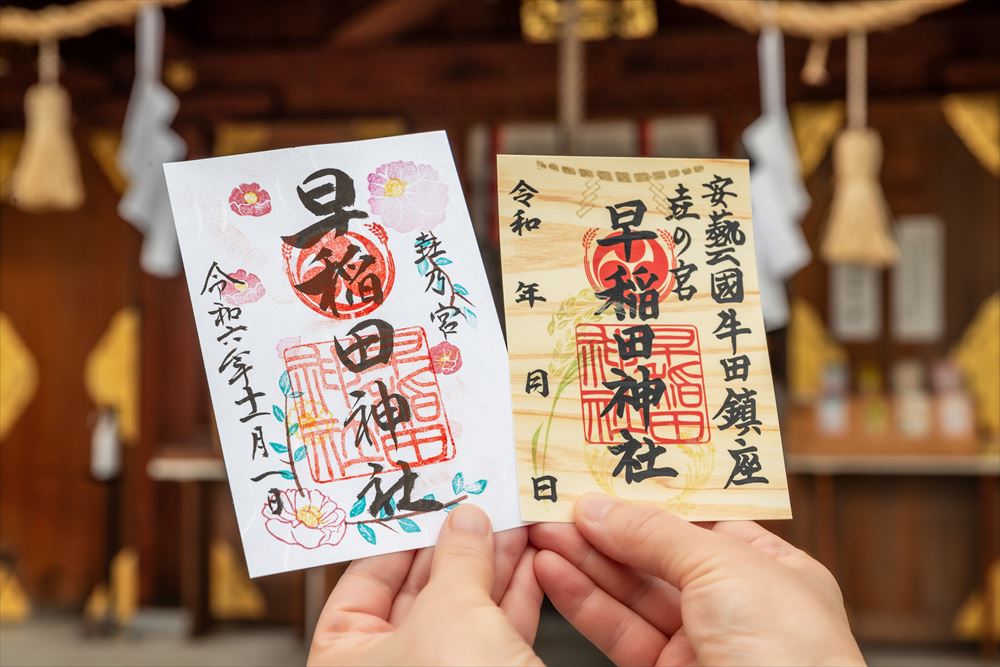 乃宮
早稲田神社
令和六年十一月一日
早稲田
神社
安藝國牛田鎮座
の宮
早稲田神社
令和 年 月 日
早稲田
神社